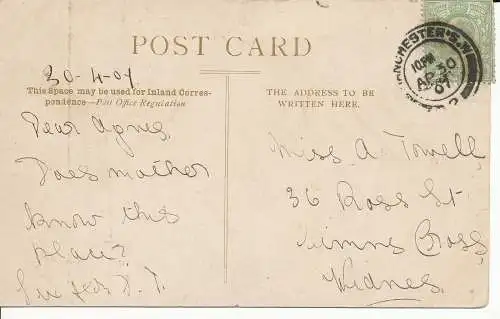 POST CARD
30-4-07
This Space may be used for Inland Corres-
pondence—Post Office Regulation
THE ADDRESS TO BE
WRITTEN HERE.
Dear Agnes,
Does mother
know this
place?
MANCHESTER S.W
10 PM
AP 30
07
Miss A Towell,
36 Ross St
Simms Cross,
Widnes